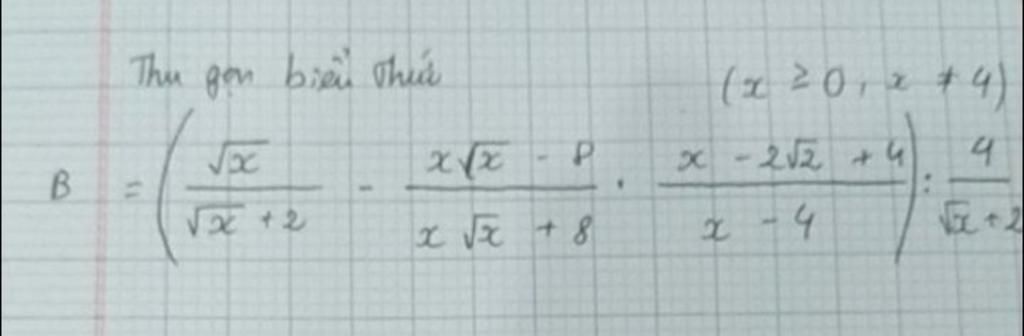 Thu gọn biểu thức (x ≥ 0, x ≠ 4)
B = (√x / (√x + 2) - (x√x - 8) / (x√x + 8) . (x - 2√2 + 4) / (x - 4)) : 4 / (√x + 2)